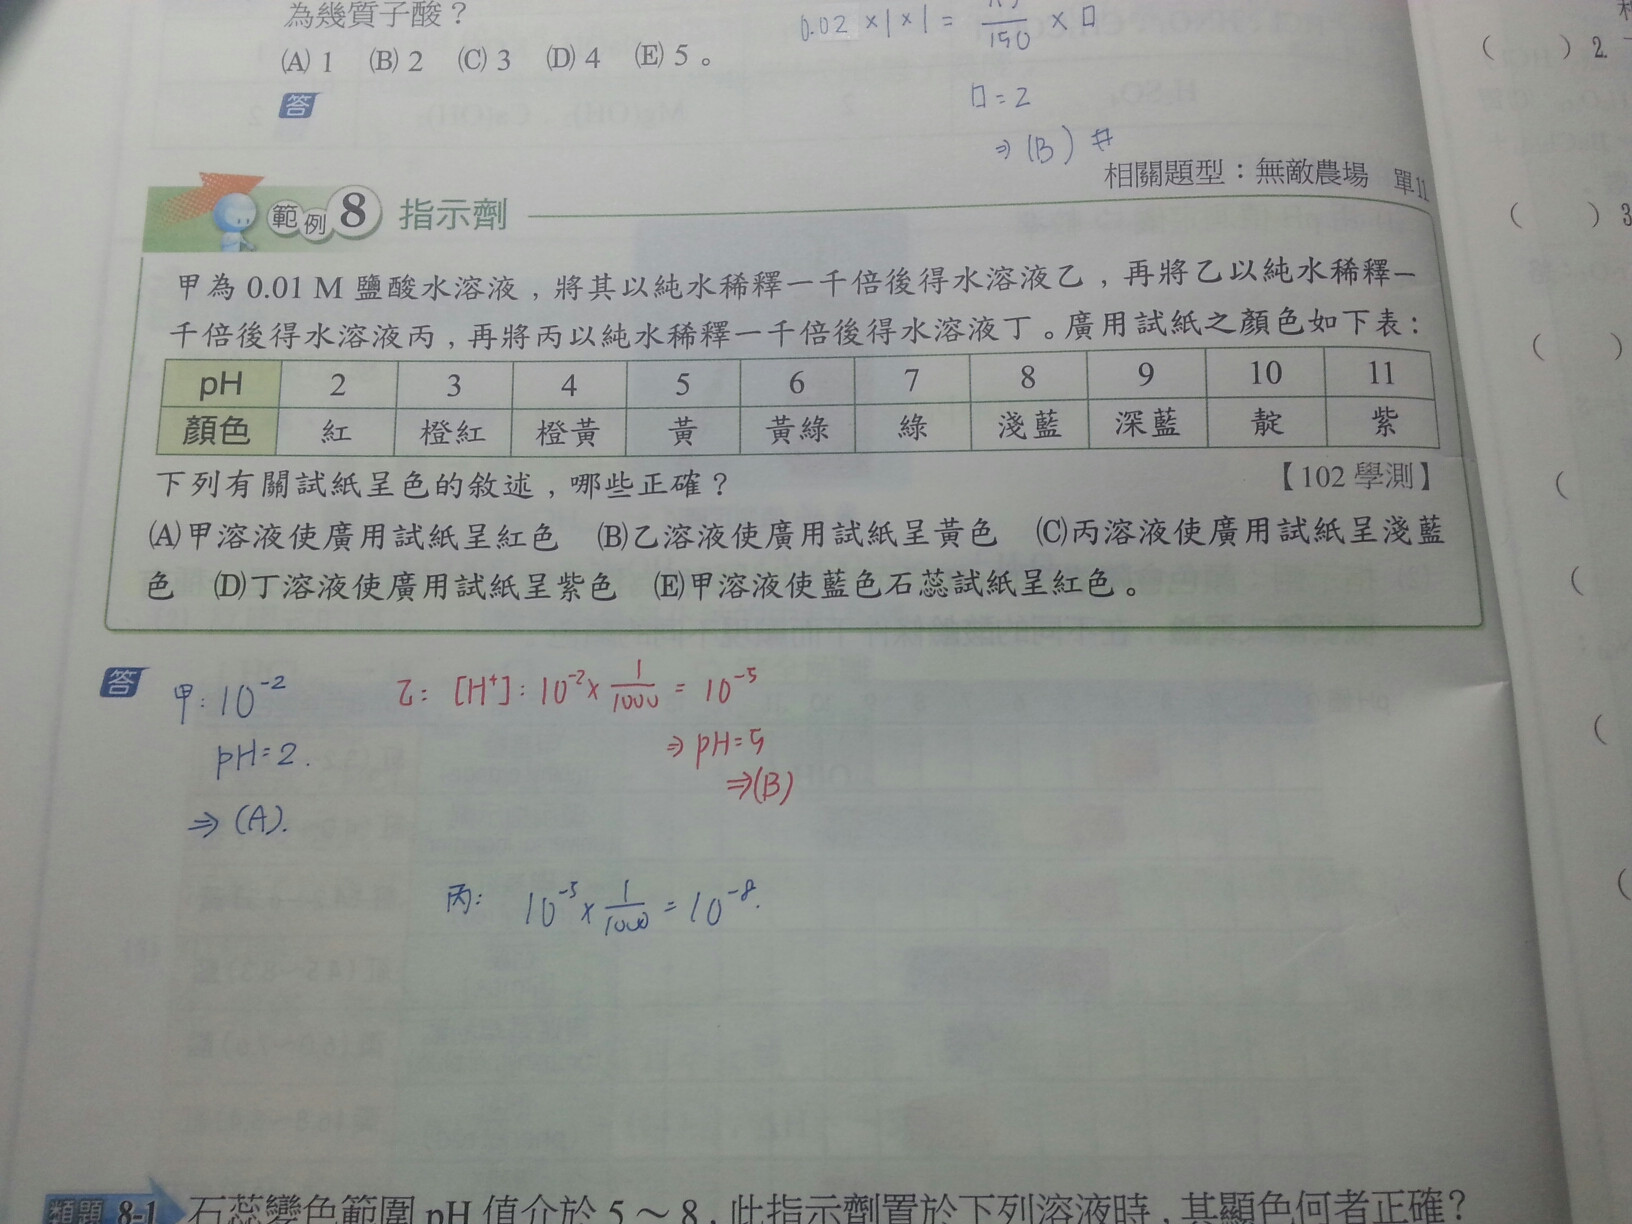 為幾質子酸？
(A) 1 (B) 2 (C) 3 (D) 4 (E) 5 。
0.02 × 1 × 1 = /150 × □
□ = 2
⇒ (B) #
答
相關題型：無敵農場 單11
範例 8 指示劑
甲為 0.01 M 鹽酸水溶液，將其以純水稀釋一千倍後得水溶液乙，再將乙以純水稀釋一
千倍後得水溶液丙，再將丙以純水稀釋一千倍後得水溶液丁。廣用試紙之顏色如下表：
pH 2 3 4 5 6 7 8 9 10 11
顏色 紅 橙紅 橙黃 黃 黃綠 綠 淺藍 深藍 靛 紫
下列有關試紙呈色的敘述，哪些正確？ 【102 學測】
(A)甲溶液使廣用試紙呈紅色 (B)乙溶液使廣用試紙呈黃色 (C)丙溶液使廣用試紙呈淺藍
色 (D)丁溶液使廣用試紙呈紫色 (E)甲溶液使藍色石蕊試紙呈紅色。
答
甲: 10⁻²
pH = 2.
⇒ (A).
乙: [H⁺]: 10⁻² × 1/1000 = 10⁻⁵
⇒ pH = 5
⇒ (B)
丙: 10⁻⁵ × 1/1000 = 10⁻⁸.
類題 8-1 石蕊變色範圍 pH 值介於 5～8，此指示劑置於下列溶液時，其顯色何者正確？
( ) 2.
( ) 3
( )
(
(
(
(